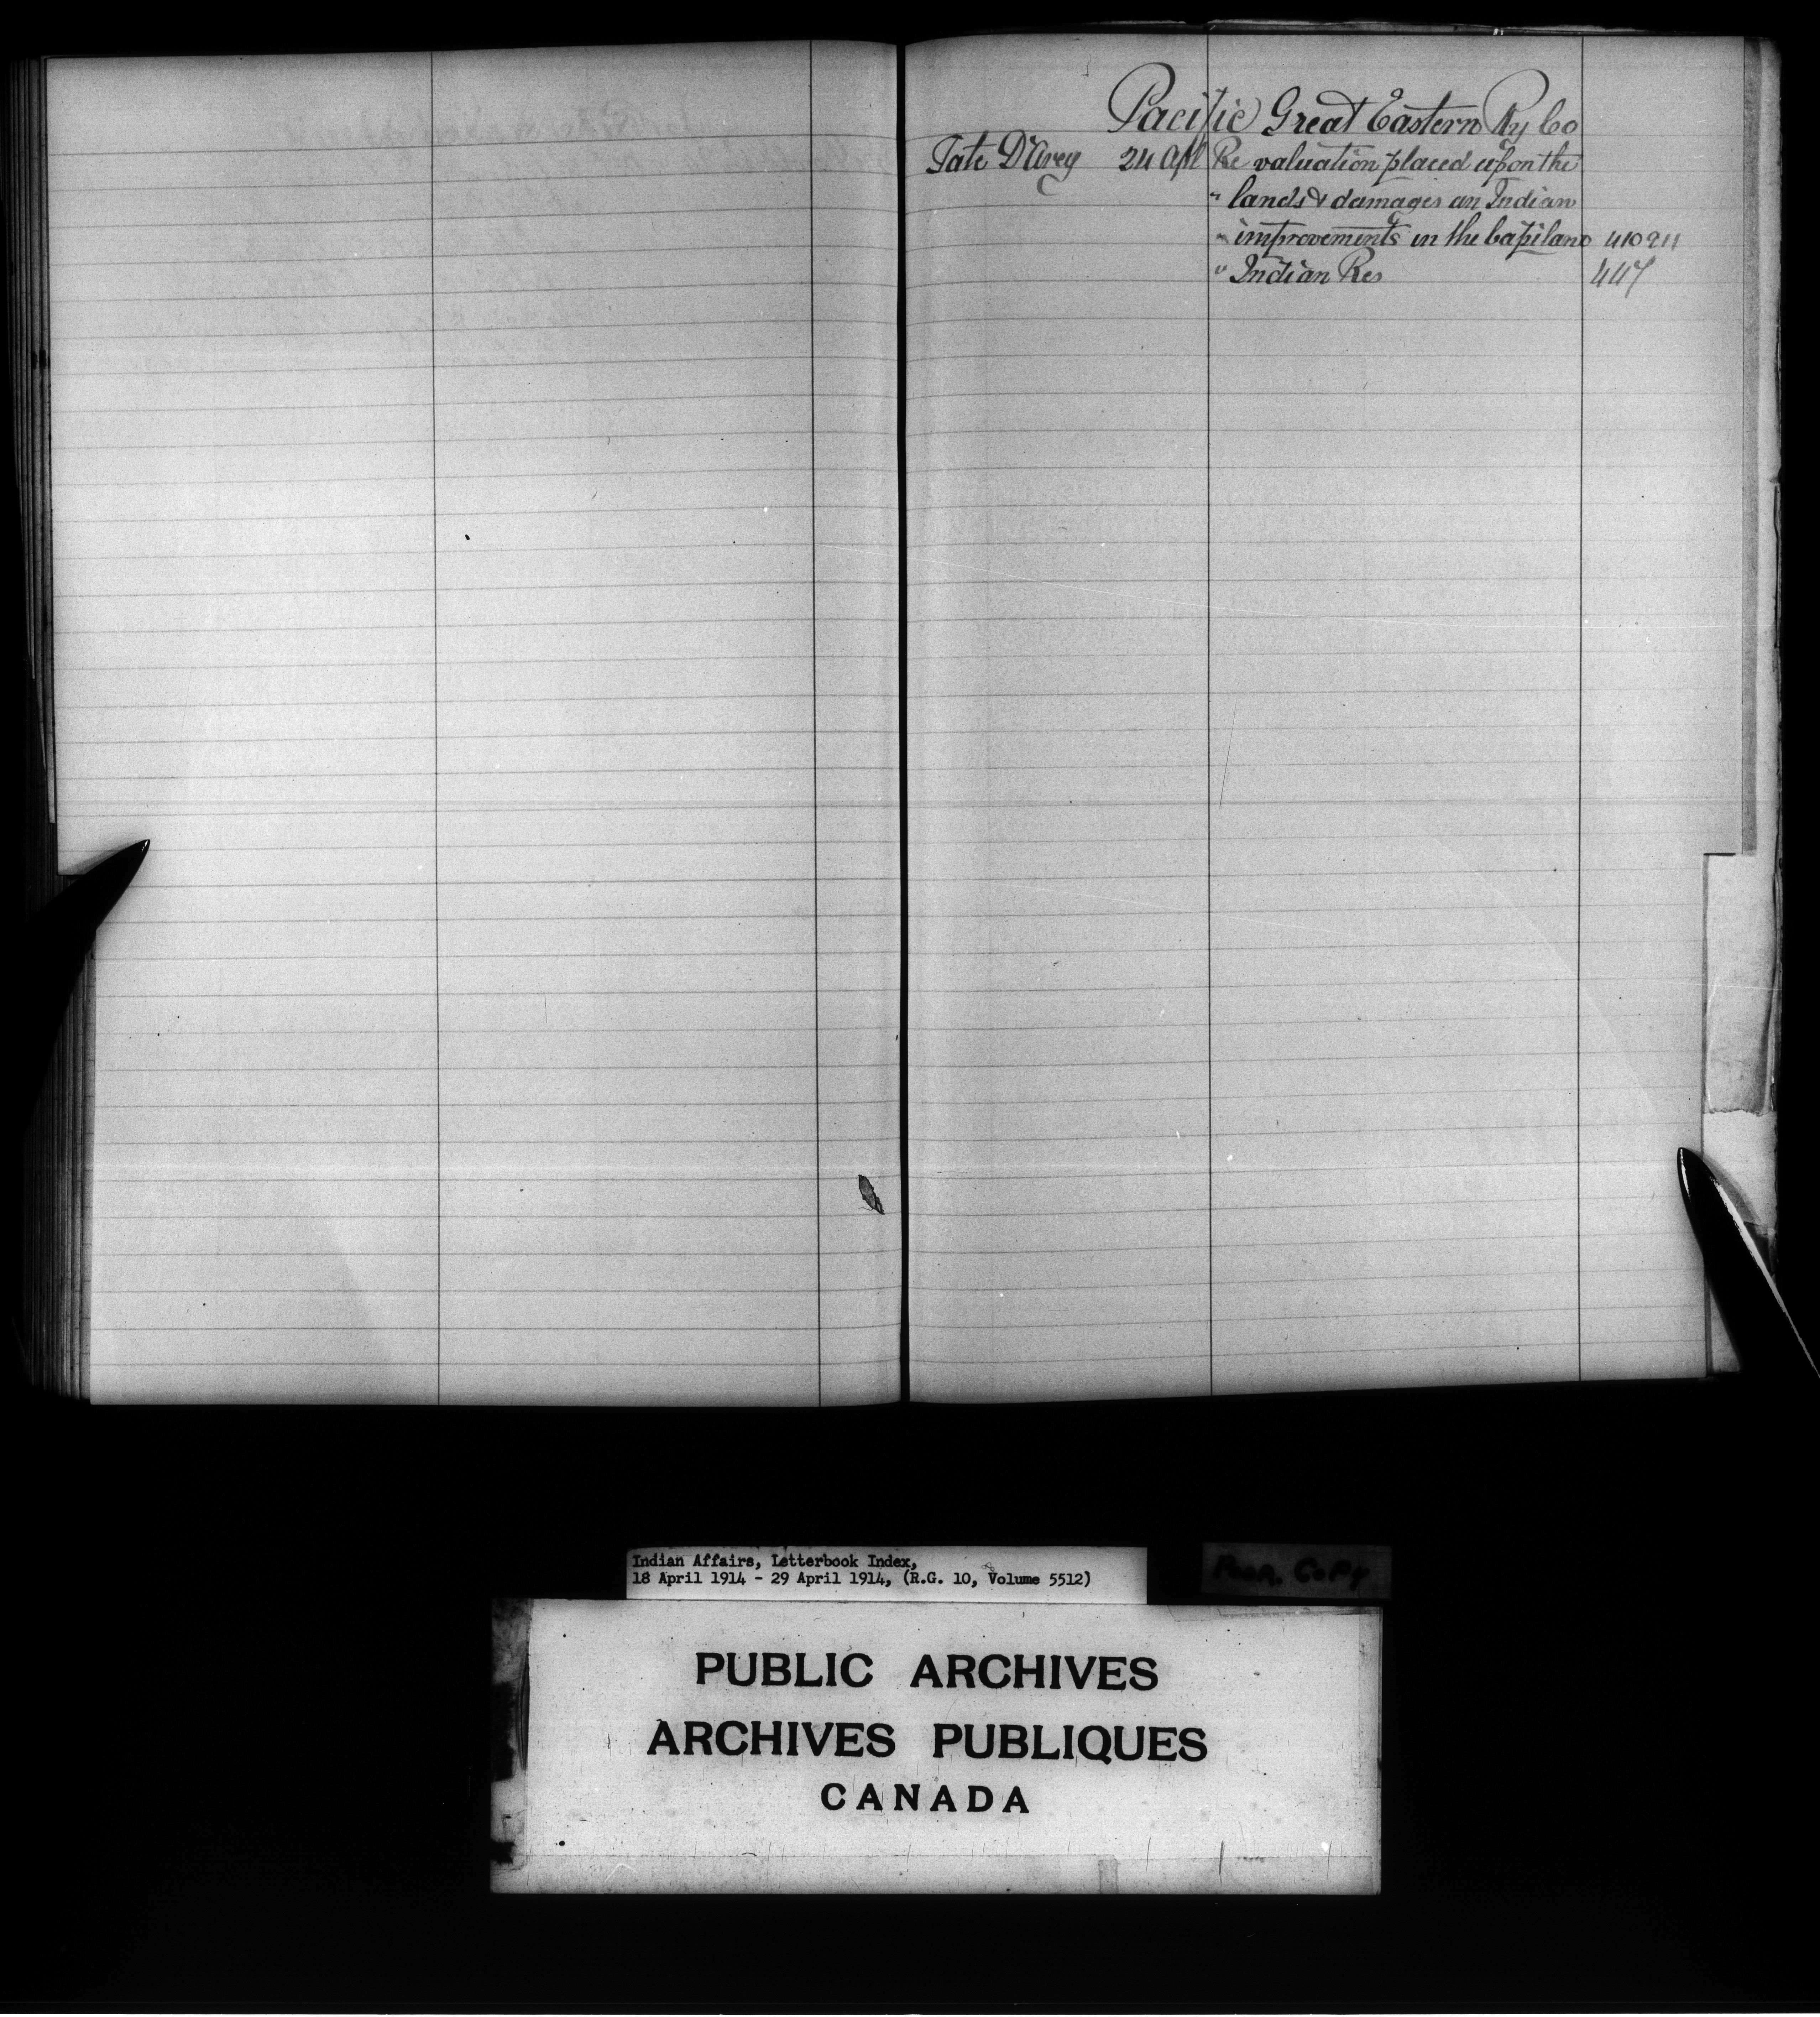 Pacific Great Eastern Ry Co
Tate D'Arcy 24 Apl Re valuation placed upon the
" lands & damages an Indian
" improvements in the Capilano 410911
" Indian Res 447
Indian Affairs, Letterbook Index,
18 April 1914 - 29 April 1914, (R.G. 10, Volume 5512)
Poor Copy
PUBLIC ARCHIVES
ARCHIVES PUBLIQUES
CANADA